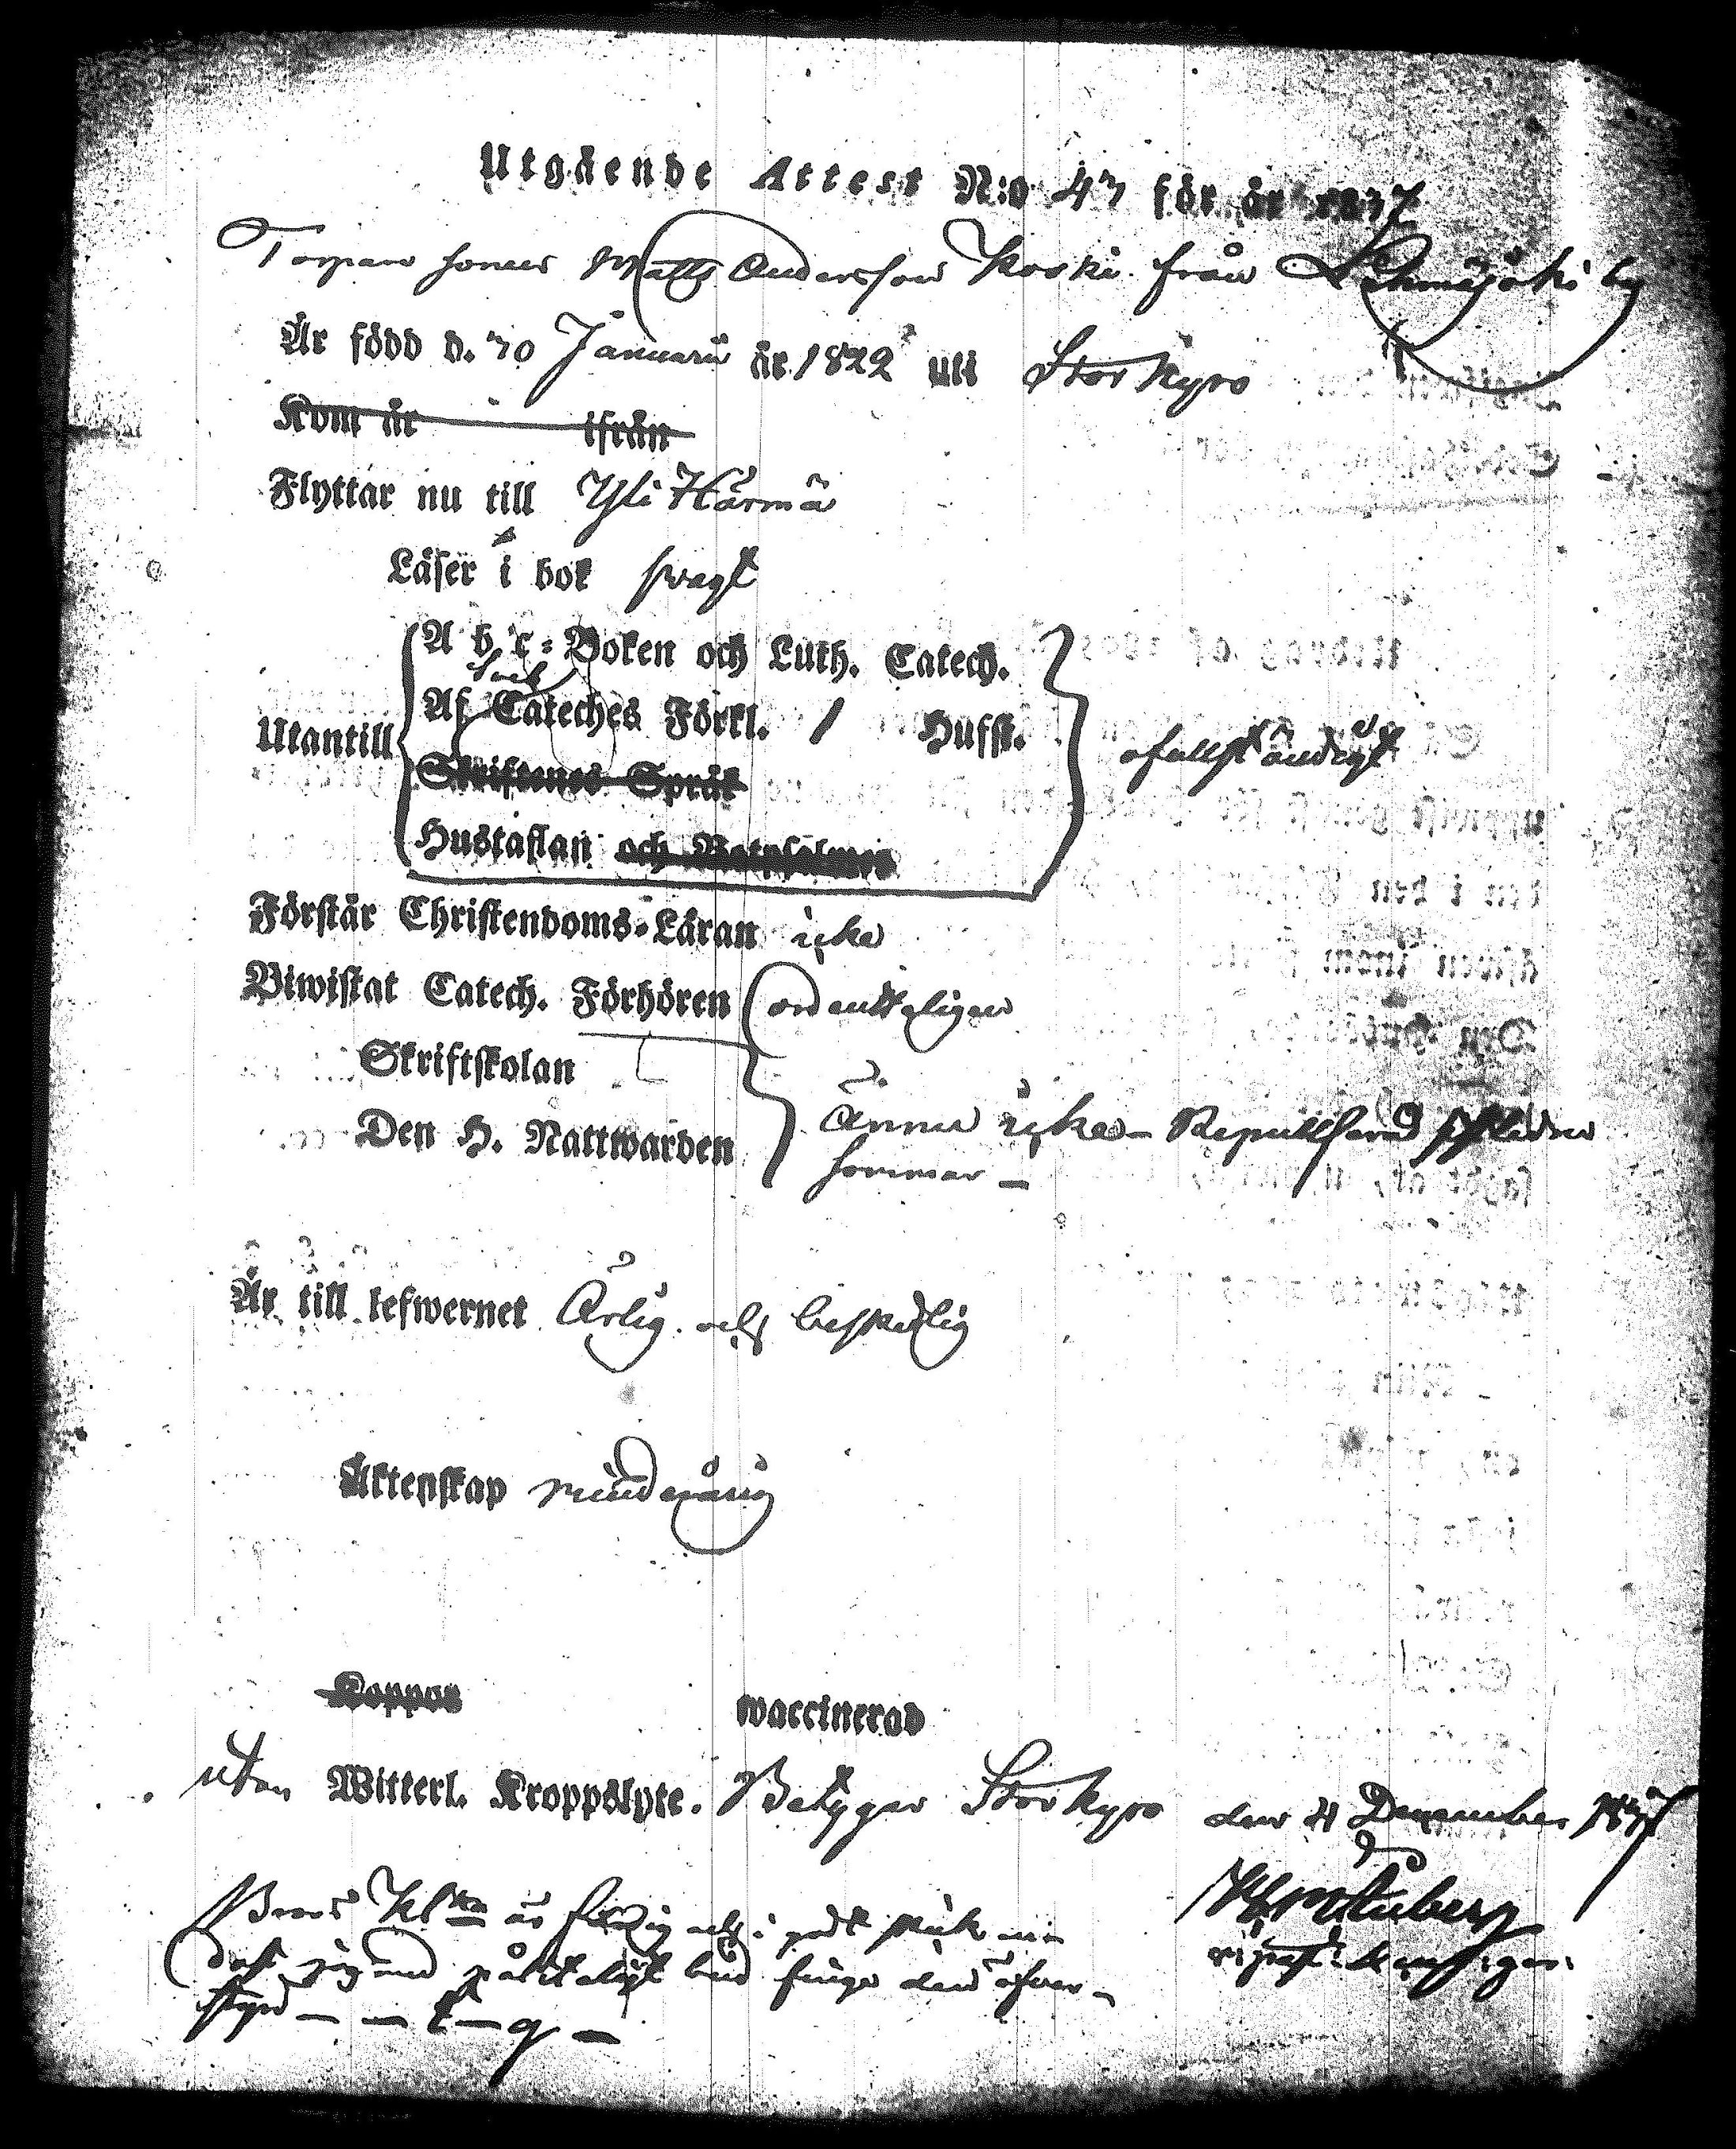 Utgående Attest N:o 47 för år 1837
Torpare sonen Matts Andersson Koski från Lehmäjoki by
Är född d. 30 Januarii år 1822 uti Storkyro
Kom år ifrån
Flyttar nu till Yli Härmä
Läser i bok svagt
A b c-Boken och Luth. Catech.
Af Cateches Förkl. / Hufst.
Utantill ofullständigt
Skriftenes Språk
Hustaflan och Botpsalmer
Förstår Christendoms-Läran icke
Biwistat Catech. Förhören ordentligen
Skriftskolan
Den H. Nattwarden Ännu icke - sistlidne
sommar -
Är till lefwernet Ärlig och beskedlig
Äktenskap minderårig
Koppor waccinerad
utan Witterl. Kroppslyte. Betygar Storkyro den December 1837
är och i godt
- - t - q -